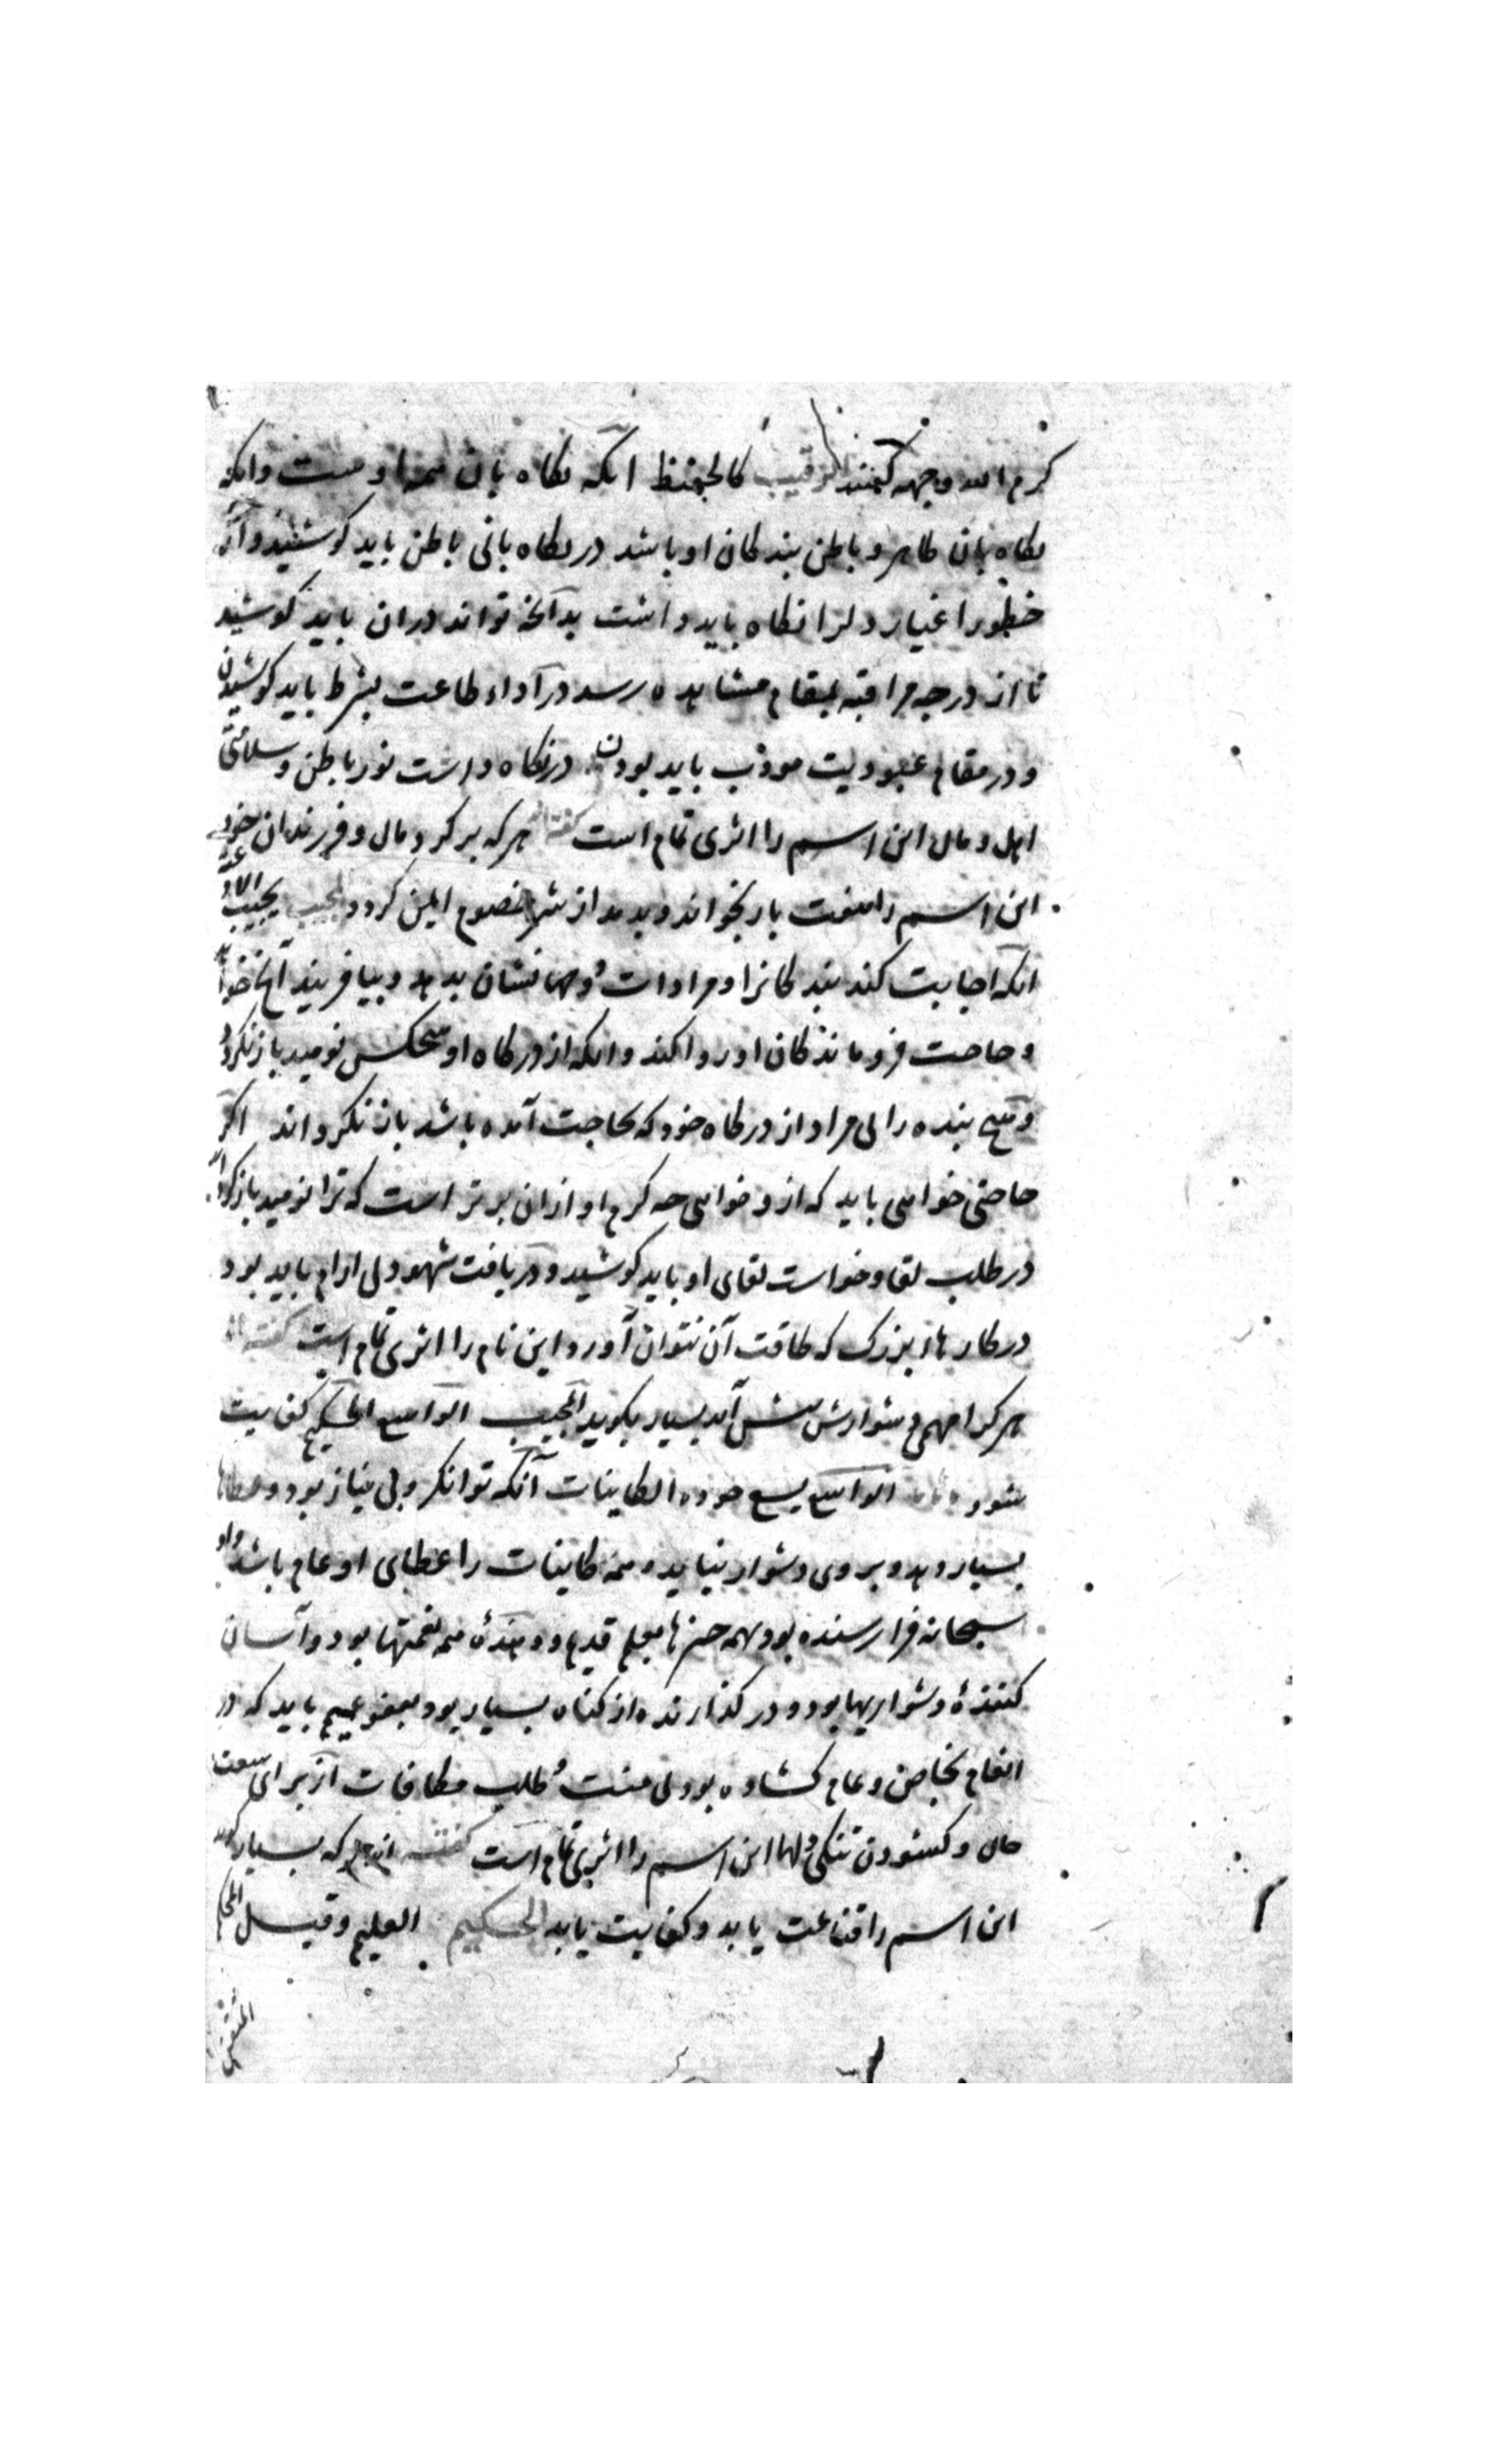 کرم الله وجهه گفتند الرقیب کالحفیظ انکه نکاه بان همه اوست وانکه
نکاه بان ظاهر و باطن بندکان او باشد در نکاه بانی باطن باید کوشید و از
خطور اغیار دلرا نکاه باید داشت بدآنچه تواند دران باید کوشید
تا از درجه مراقبه بمقام مشاهده رسد در آداء طاعت بشرط باید کوشیدن
و در مقام عبودیت مودب باید بودن در نکاه داشت نور باطن و سلامتی
اهل و مال این اسم را اثری تمام است گفته هرکه بر کرد مال و فرزندان خود
این اسم را هفت بار بخواند و بدمد از شر خصوم ایمن کردد المجیب یجیب
انکه اجابت کند بندکانرا و مرادات و مهماتشان بدهد و بیافریند آنچه
و حاجت فروماندکان او روا کند و انکه از درکاه او هیچکس نومید باز نکردد
و هیچ بنده را بی مراد از درکاه خود که بحاجت آمده باشد باز نکرداند اکر
حاجتی خواهی باید که ازو خواهی چه کرم او ازان برتر است که ترا نومید باز
در طلب لقا و خواست لقای او باید کوشید و در یافت شهود بی ارام باید بود
در کارهاء بزرک که طاقت آن نتوان آورد این نام را اثری تمام است گفته اند
هر کرا مهمی دشوارش پیش آید بسیار بکوید المجیب الواسع الحکیم کفایت
شود الواسع یسع جوده الکاینات آنکه توانکر و بی نیاز بود و عطاها
بسیار دهد و بر وی دشوار نیاید و همه کاینات را عطای او عام باشد و او
سبحانه فرا رسنده بود بهمه چیزها بعلم قدیم و دهندهٔ همه نعمتها بود و آسان
کنندهٔ دشواریها بود و در کذارنده از کناه بسیار بود بعفو عمیم باید که در
انعام بخاص و عام کشاده بود بی منت و طلب مکافات از برای سعت
حال و کشودن تنکی دلها این اسم را اثری تمام است گفته هر که بسیار کوید
این اسم را قناعت یابد و کفایت یابد الحکیم العلیم و قیل المحکم
المتقن